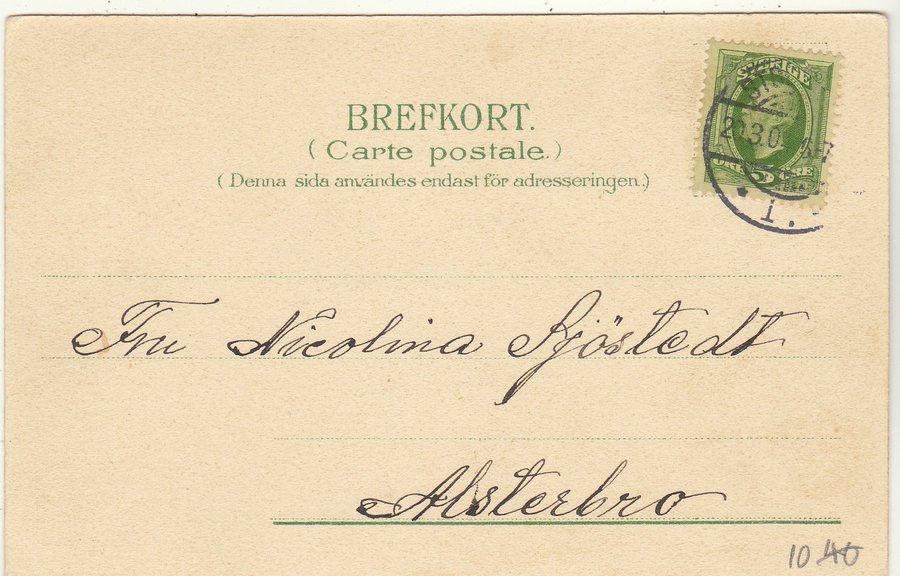 BREFKORT.
(Carte postale.)
(Denna sida användes endast för adresseringen.)
SVERIGE
ÖRE 5 ÖRE
Fru Nicolina Sjöstedt
Alsterbro
10 40